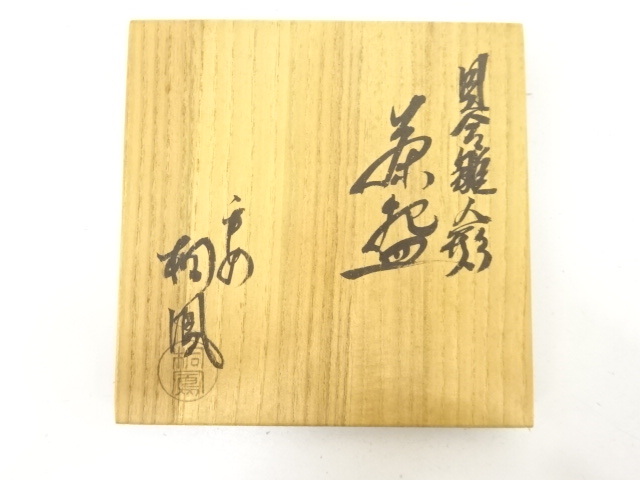 貝合雛人形
茶盌
平安
桐鳳
桐鳳